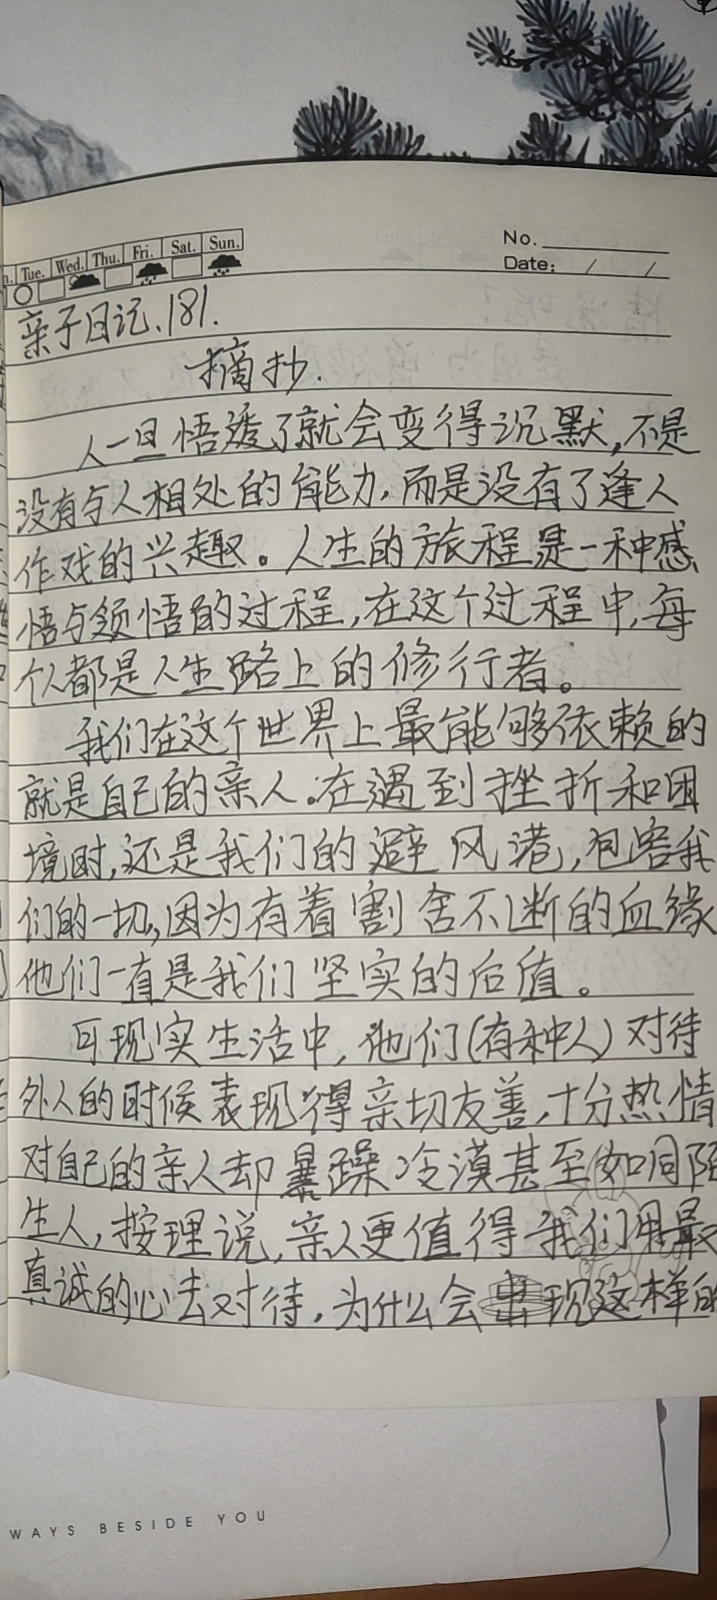 Tue. Wed. Thu. Fri. Sat. Sun.
No.
Date: / /
亲子日记、181.
摘抄.
人一旦悟透了就会变得沉默,不是
没有与人相处的能力,而是没有了逢人
作戏的兴趣。人生的旅程是一种感
悟与领悟的过程,在这个过程中,每
个人都是人生路上的修行者。
我们在这个世界上最能够依赖的
就是自己的亲人.在遇到挫折和困
境时,还是我们的避风港,包容我
们的一切,因为有着割舍不断的血缘
他们一直是我们坚实的后盾。
可现实生活中,他们(有种人)对待
外人的时候表现得亲切友善,十分热情
对自己的亲人却暴躁冷漠甚至如同陌
生人,按理说,亲人更值得我们用最
真诚的心去对待,为什么会出现这样的
WAYS BESIDE YOU